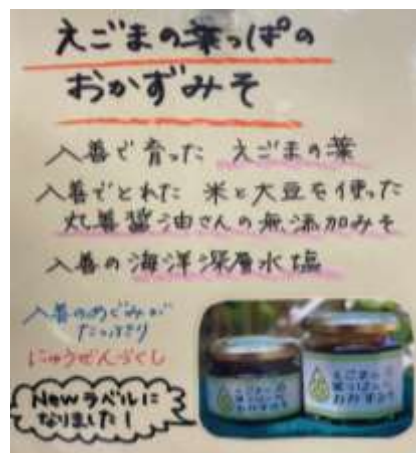 えごまの葉っぱの
おかずみそ
入善で育った えごまの葉
入善でとれた 米と大豆を使った
丸善醤油さんの無添加みそ
入善の海洋深層水塩
入善のめぐみが
たっぷり
にゅうぜんづくし
Newラベルに
なりました!
えごまの
葉っぱの
おかずみそ
えごまの
葉っぱの
おかずみそ